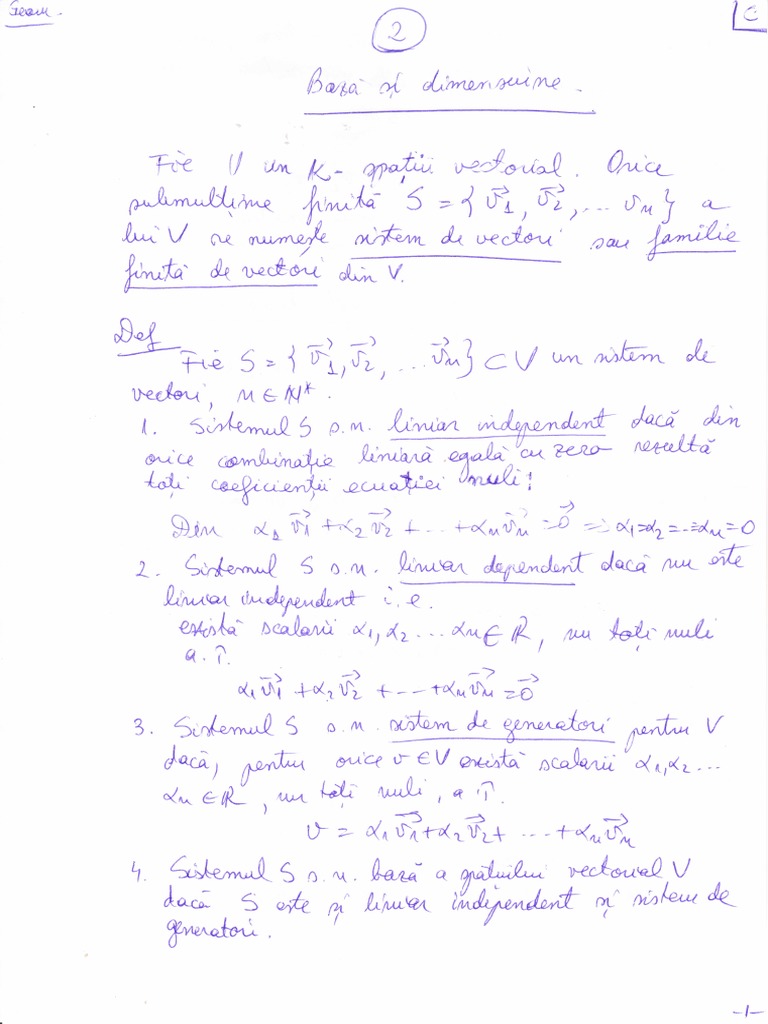 Geom.
C
2
Bază și dimensiuine.
Fie V un K-spațiu vectorial. Orice
submulțime finită S = { v⃗1, v⃗2, ... vn } a
lui V se numește sistem de vectori sau familie
finită de vectori din V.
Def
Fie S = { v⃗1, v⃗2, ... v⃗n } ⊂ V un sistem de
vectori, n ∈ N*.
1. Sistemul S s.n. liniar independent dacă din
orice combinație liniară egală cu zero rezultă
toți coeficienții ecuației nuli:
Din α1 v⃗1 + α2 v⃗2 + ... + αn v⃗n = 0⃗ => α1=α2=...=αn=0
2. Sistemul S s.n. liniar dependent dacă nu este
liniar independent i.e.
există scalarii α1, α2 ... αn ∈ R, nu toți nuli
a.î.
α1 v⃗1 + α2 v⃗2 + ... + αn v⃗n = 0⃗
3. Sistemul S s.n. sistem de generatori pentru V
dacă, pentru orice v ∈ V există scalarii α1, α2 ...
αn ∈ R, nu toți nuli, a î.
v = α1 v⃗1 + α2 v⃗2 + ... + αn v⃗n
4. Sistemul S s.n. bază a spațiului vectorial V
dacă S este și liniar independent și sistem de
generatori.
-1-